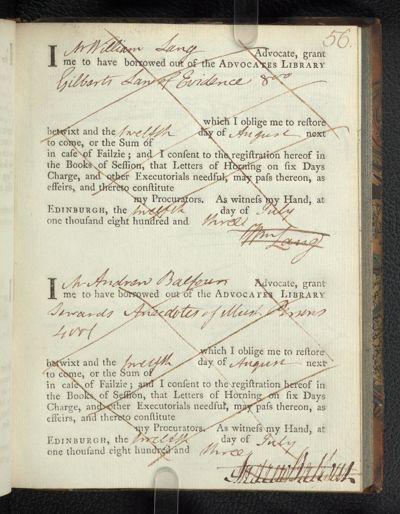 56.
I Mr William Lang Advocate, grant
me to have borrowed out of the ADVOCATES LIBRARY
Gilberts Law of Evidence 8vo
which I oblige me to restore
betwixt and the twelfth day of August next
to come, or the Sum of
in case of Failzie; and I consent to the registration hereof in
the Books of Session, that Letters of Horning on six Days
Charge, and other Executorials needful, may pass thereon, as
effeirs, and thereto constitute
my Procurators. As witness my Hand, at
EDINBURGH, the twelfth day of July
one thousand eight hundred and three
Wm Lang
I Mr Andrew Balfour Advocate, grant
me to have borrowed out of the ADVOCATES LIBRARY
Sewards Anecdotes of Illust. Persons
4 vols
which I oblige me to restore
betwixt and the twelfth day of August next
to come, or the Sum of
in case of Failzie; and I consent to the registration hereof in
the Books of Session, that Letters of Horning on six Days
Charge, and other Executorials needful, may pass thereon, as
effeirs, and thereto constitute
my Procurators. As witness my Hand, at
EDINBURGH, the twelfth day of July
one thousand eight hundred and three
Andrew Balfour